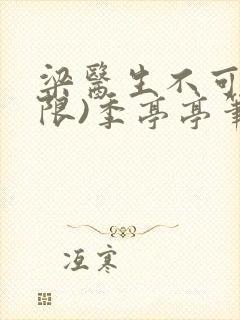 梁醫生不可
限)季亭亭筆
冱寒